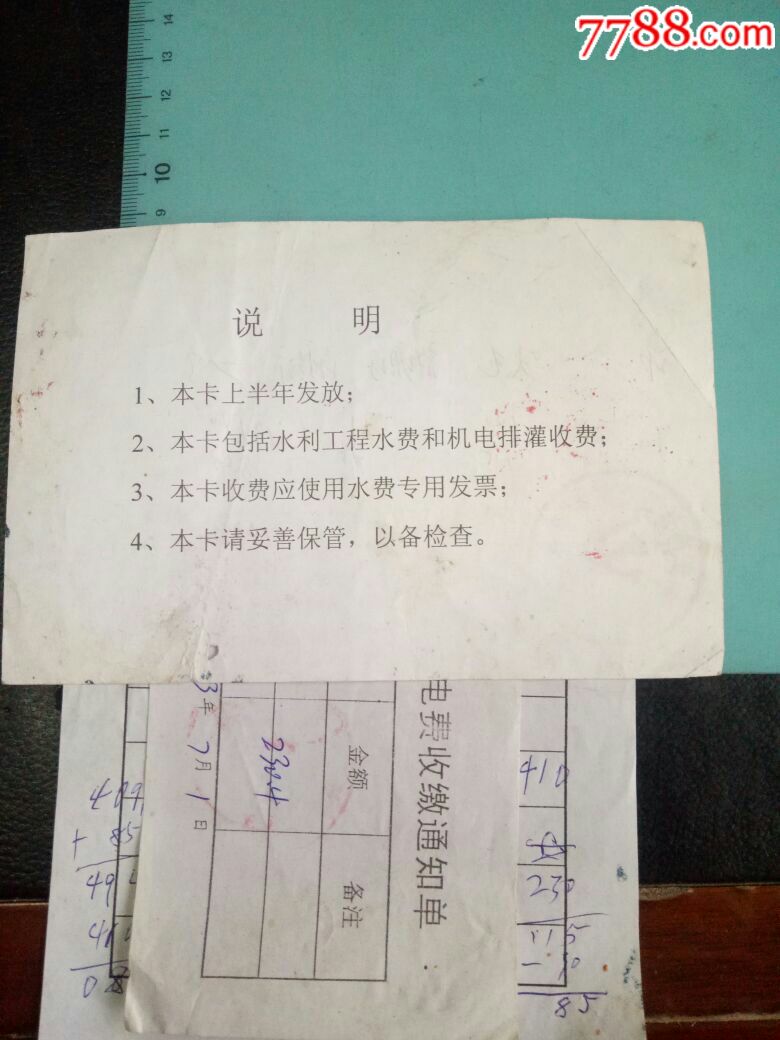 7788.com
14
13
12
11
10
9
说 明
1、本卡上半年发放；
2、本卡包括水利工程水费和机电排灌收费；
3、本卡收费应使用水费专用发票；
4、本卡请妥善保管，以备检查。
电费收缴通知单
金额
备注
3年7月1日
410
230
115
85
+ 85